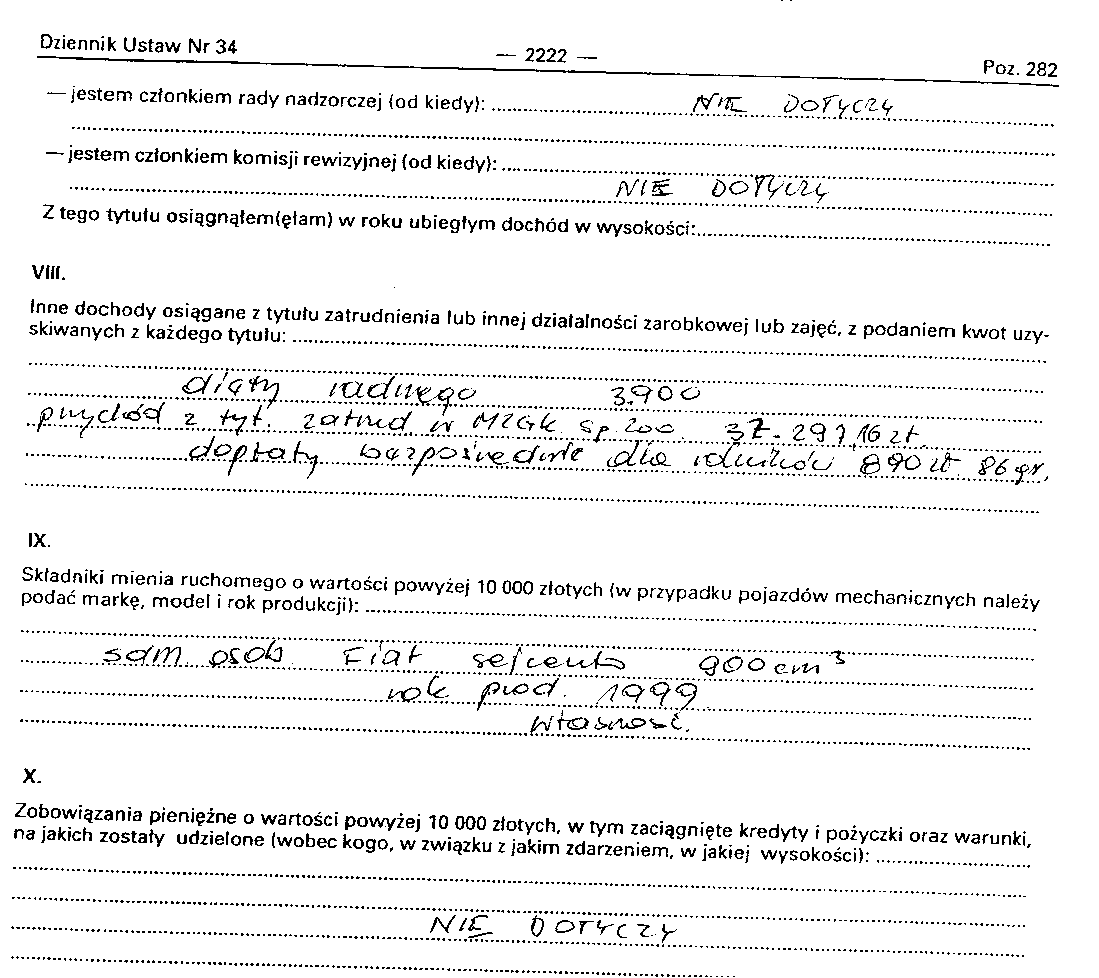 Dziennik Ustaw Nr 34 — 2222 — Poz. 282
— jestem członkiem rady nadzorczej (od kiedy): NIE DOTYCZY
— jestem członkiem komisji rewizyjnej (od kiedy):
NIE DOTYCZY
Z tego tytułu osiągnąłem(ęłam) w roku ubiegłym dochód w wysokości:
VIII.
Inne dochody osiągane z tytułu zatrudnienia lub innej działalności zarobkowej lub zajęć, z podaniem kwot uzy-
skiwanych z każdego tytułu:
diety radnego 3.900
przychód z tyt. zatrud w MZGK Sp. zoo. 37.297,16 zł
dopłaty bezpośrednie dla rolników 890 zł 86 gr.
IX.
Składniki mienia ruchomego o wartości powyżej 10 000 złotych (w przypadku pojazdów mechanicznych należy
podać markę, model i rok produkcji):
sam osob Fiat sejcento 900 cm³
rok prod. 1999
własność.
X.
Zobowiązania pieniężne o wartości powyżej 10 000 złotych, w tym zaciągnięte kredyty i pożyczki oraz warunki,
na jakich zostały udzielone (wobec kogo, w związku z jakim zdarzeniem, w jakiej wysokości):
NIE DOTYCZY